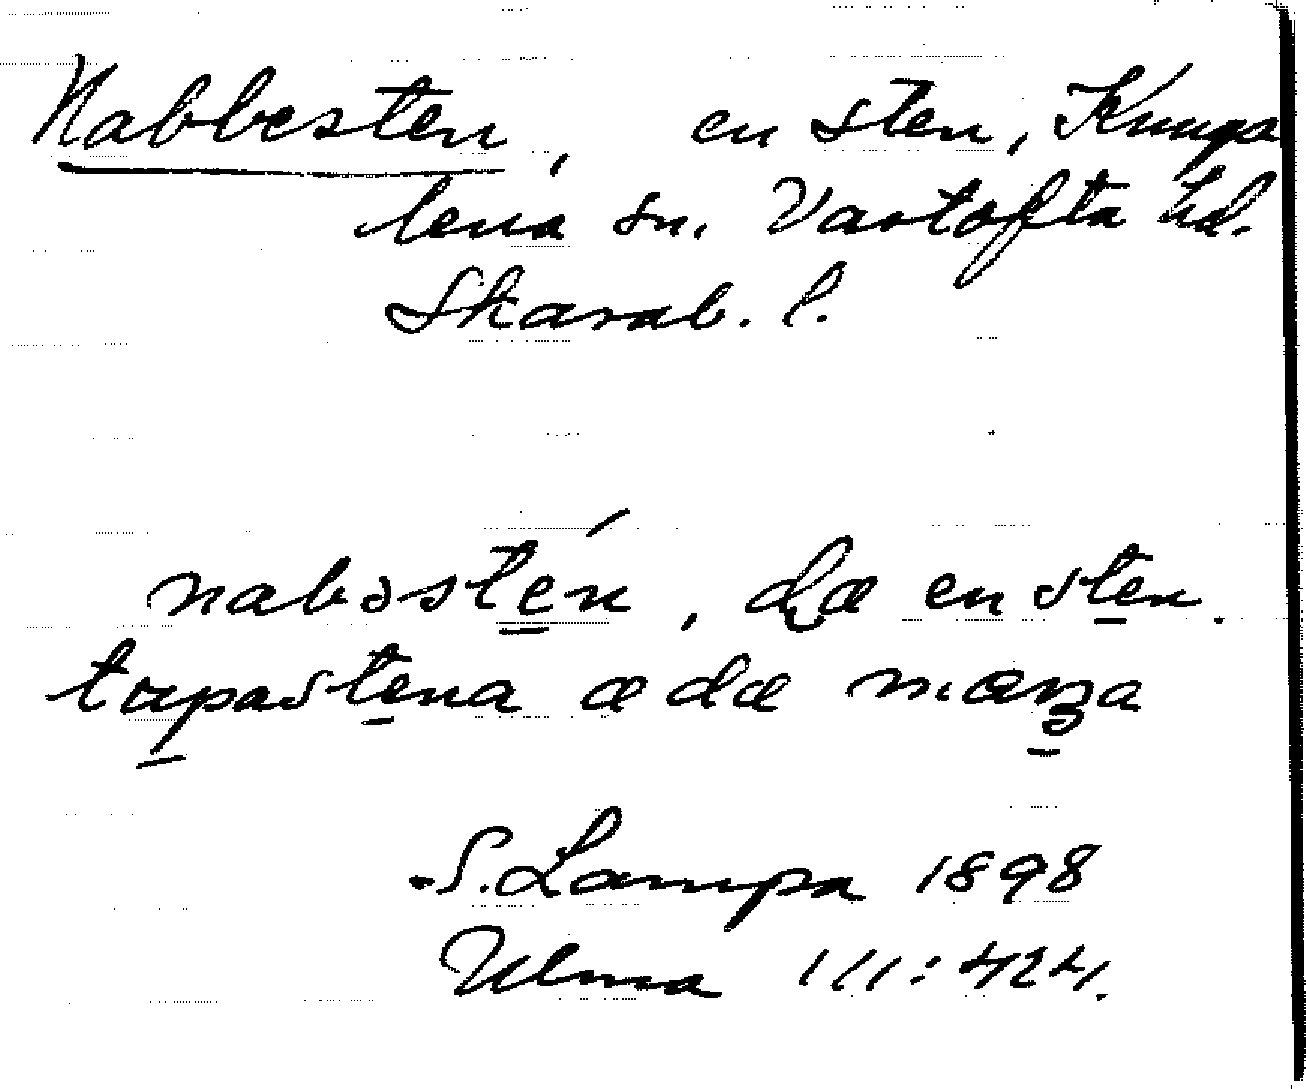 Nabbesten, en sten, Kunga
lena sn. Vartofta hd.
Skarab. l.
nabəstén, dæ en sten.
trɐpastena æ dæ mæŋa
S. Lampa 1898
Ulma 111:424.